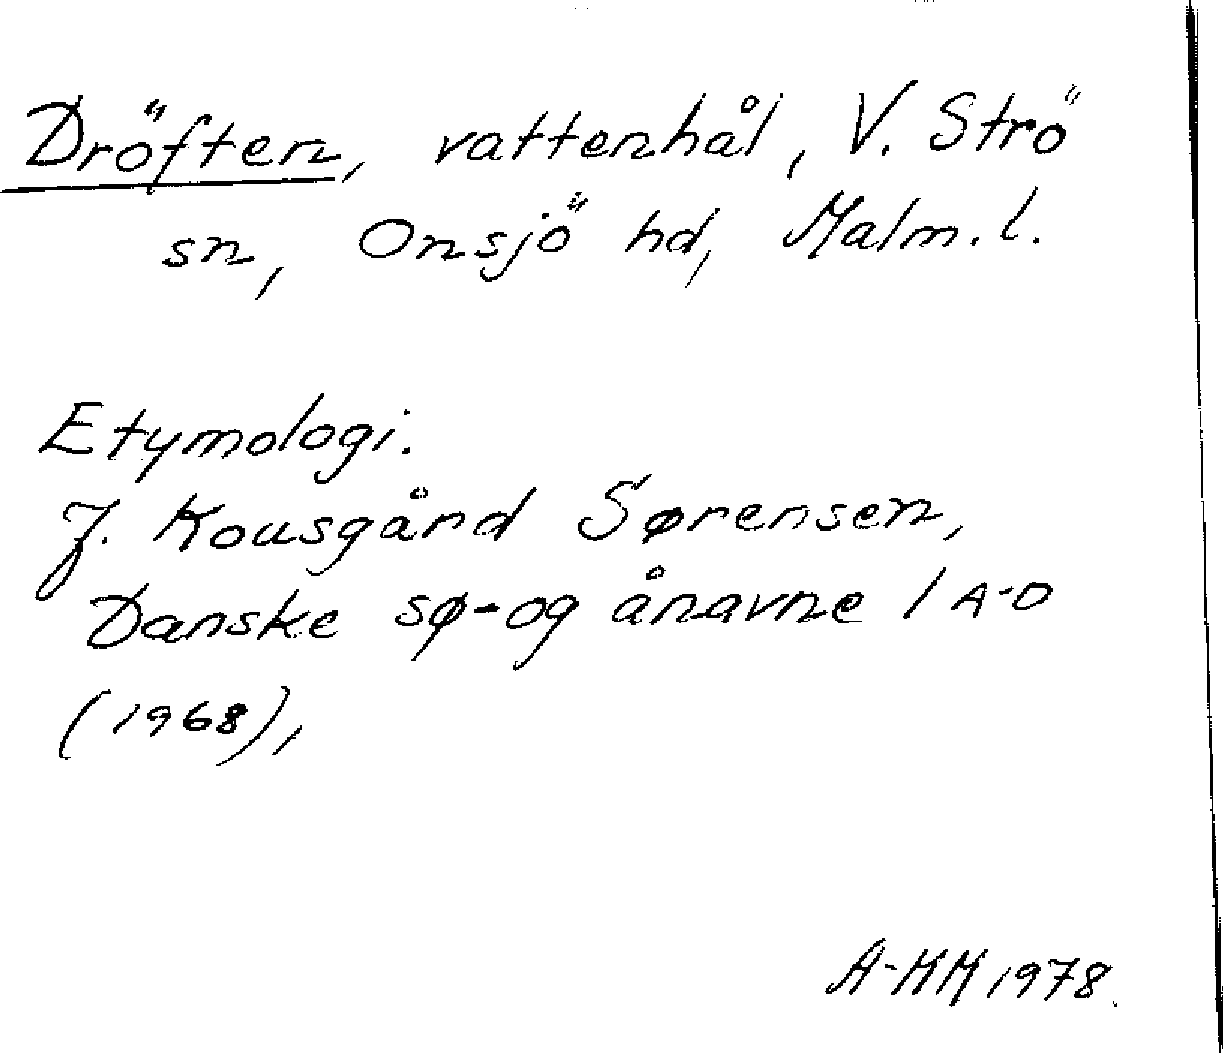 Dröften, vattenhål, V. Strö
sn, Onsjö hd, Malm. l.
Etymologi.
J. Kousgård Sørensen,
Danske sø- og ånavne 1 A-D
(1968),
A-KM 1978.